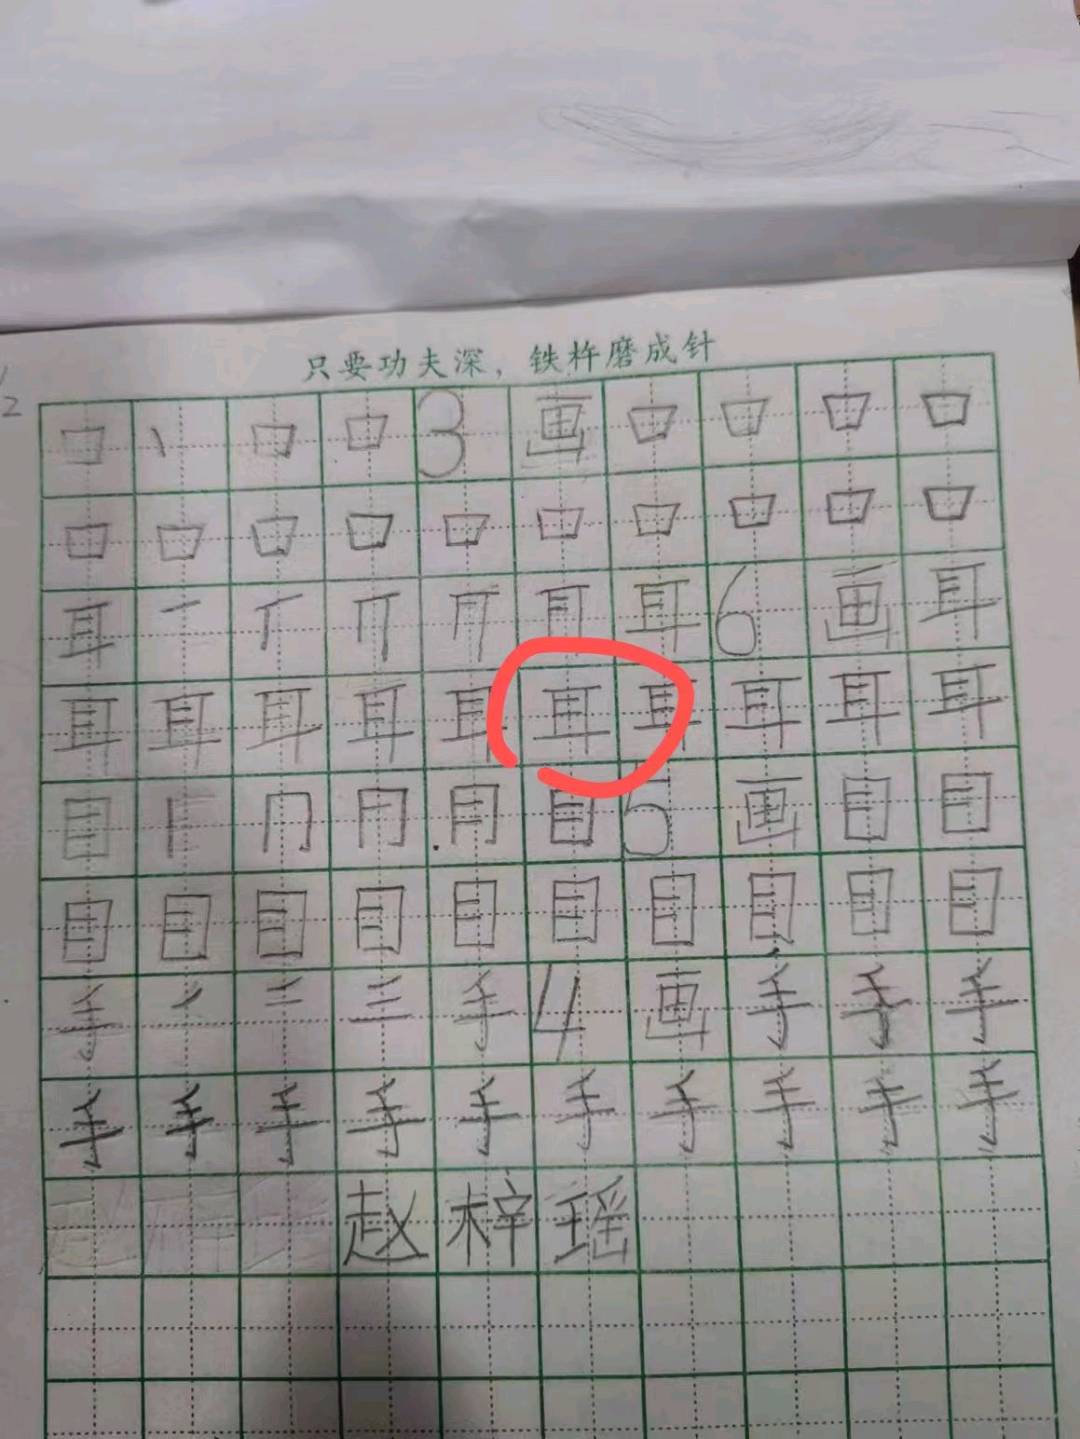 12
只要功夫深，铁杵磨成针
口 丶 口 口 3 画 口 口 口 口
口 口 口 口 口 口 口 口 口 口
耳 一 丅 丌 耳 6 画 耳
耳 耳 耳 耳 耳 耳 耳 耳 耳 耳
目 冂 月 目 5 画 目 目
目 目 目 目 目 目 目 目 目 目
手 二 三 手 4 画 手 手 手
手 手 手 手 手 手 手 手 手 手
赵 梓 瑶